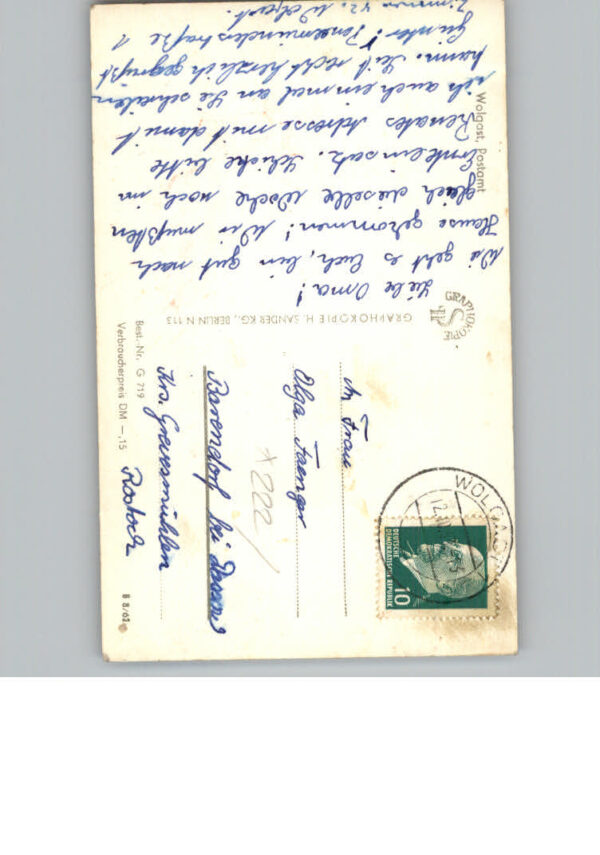 Liebe Oma!
Wie geht es Euch, bin gut nach
Hause gekommen! Wir mußten
gleich dieselbe Woche noch in
Ernteeinsatz. Schicke bitte
Renates Adresse mit damit
ich auch einmal an Sie schreiben
kann. Seit recht herzlich gegrüßt
Günter! Peenemünderstraße 1
Zimmer 42. Wolgast.
Wolgast, Postamt
GRAPHOKOPIE H. SANDER KG., BERLIN N 113
GRAPHOKOPIE
An Frau
Olga Faenger
Barendorf bei
Krs. Grevesmühlen
Rostock
Best.-Nr. G 719
Verbraucherpreis DM –,15
B 8/62
WOLGAST
DEUTSCHE
DEMOKRATISCHE REPUBLIK
10